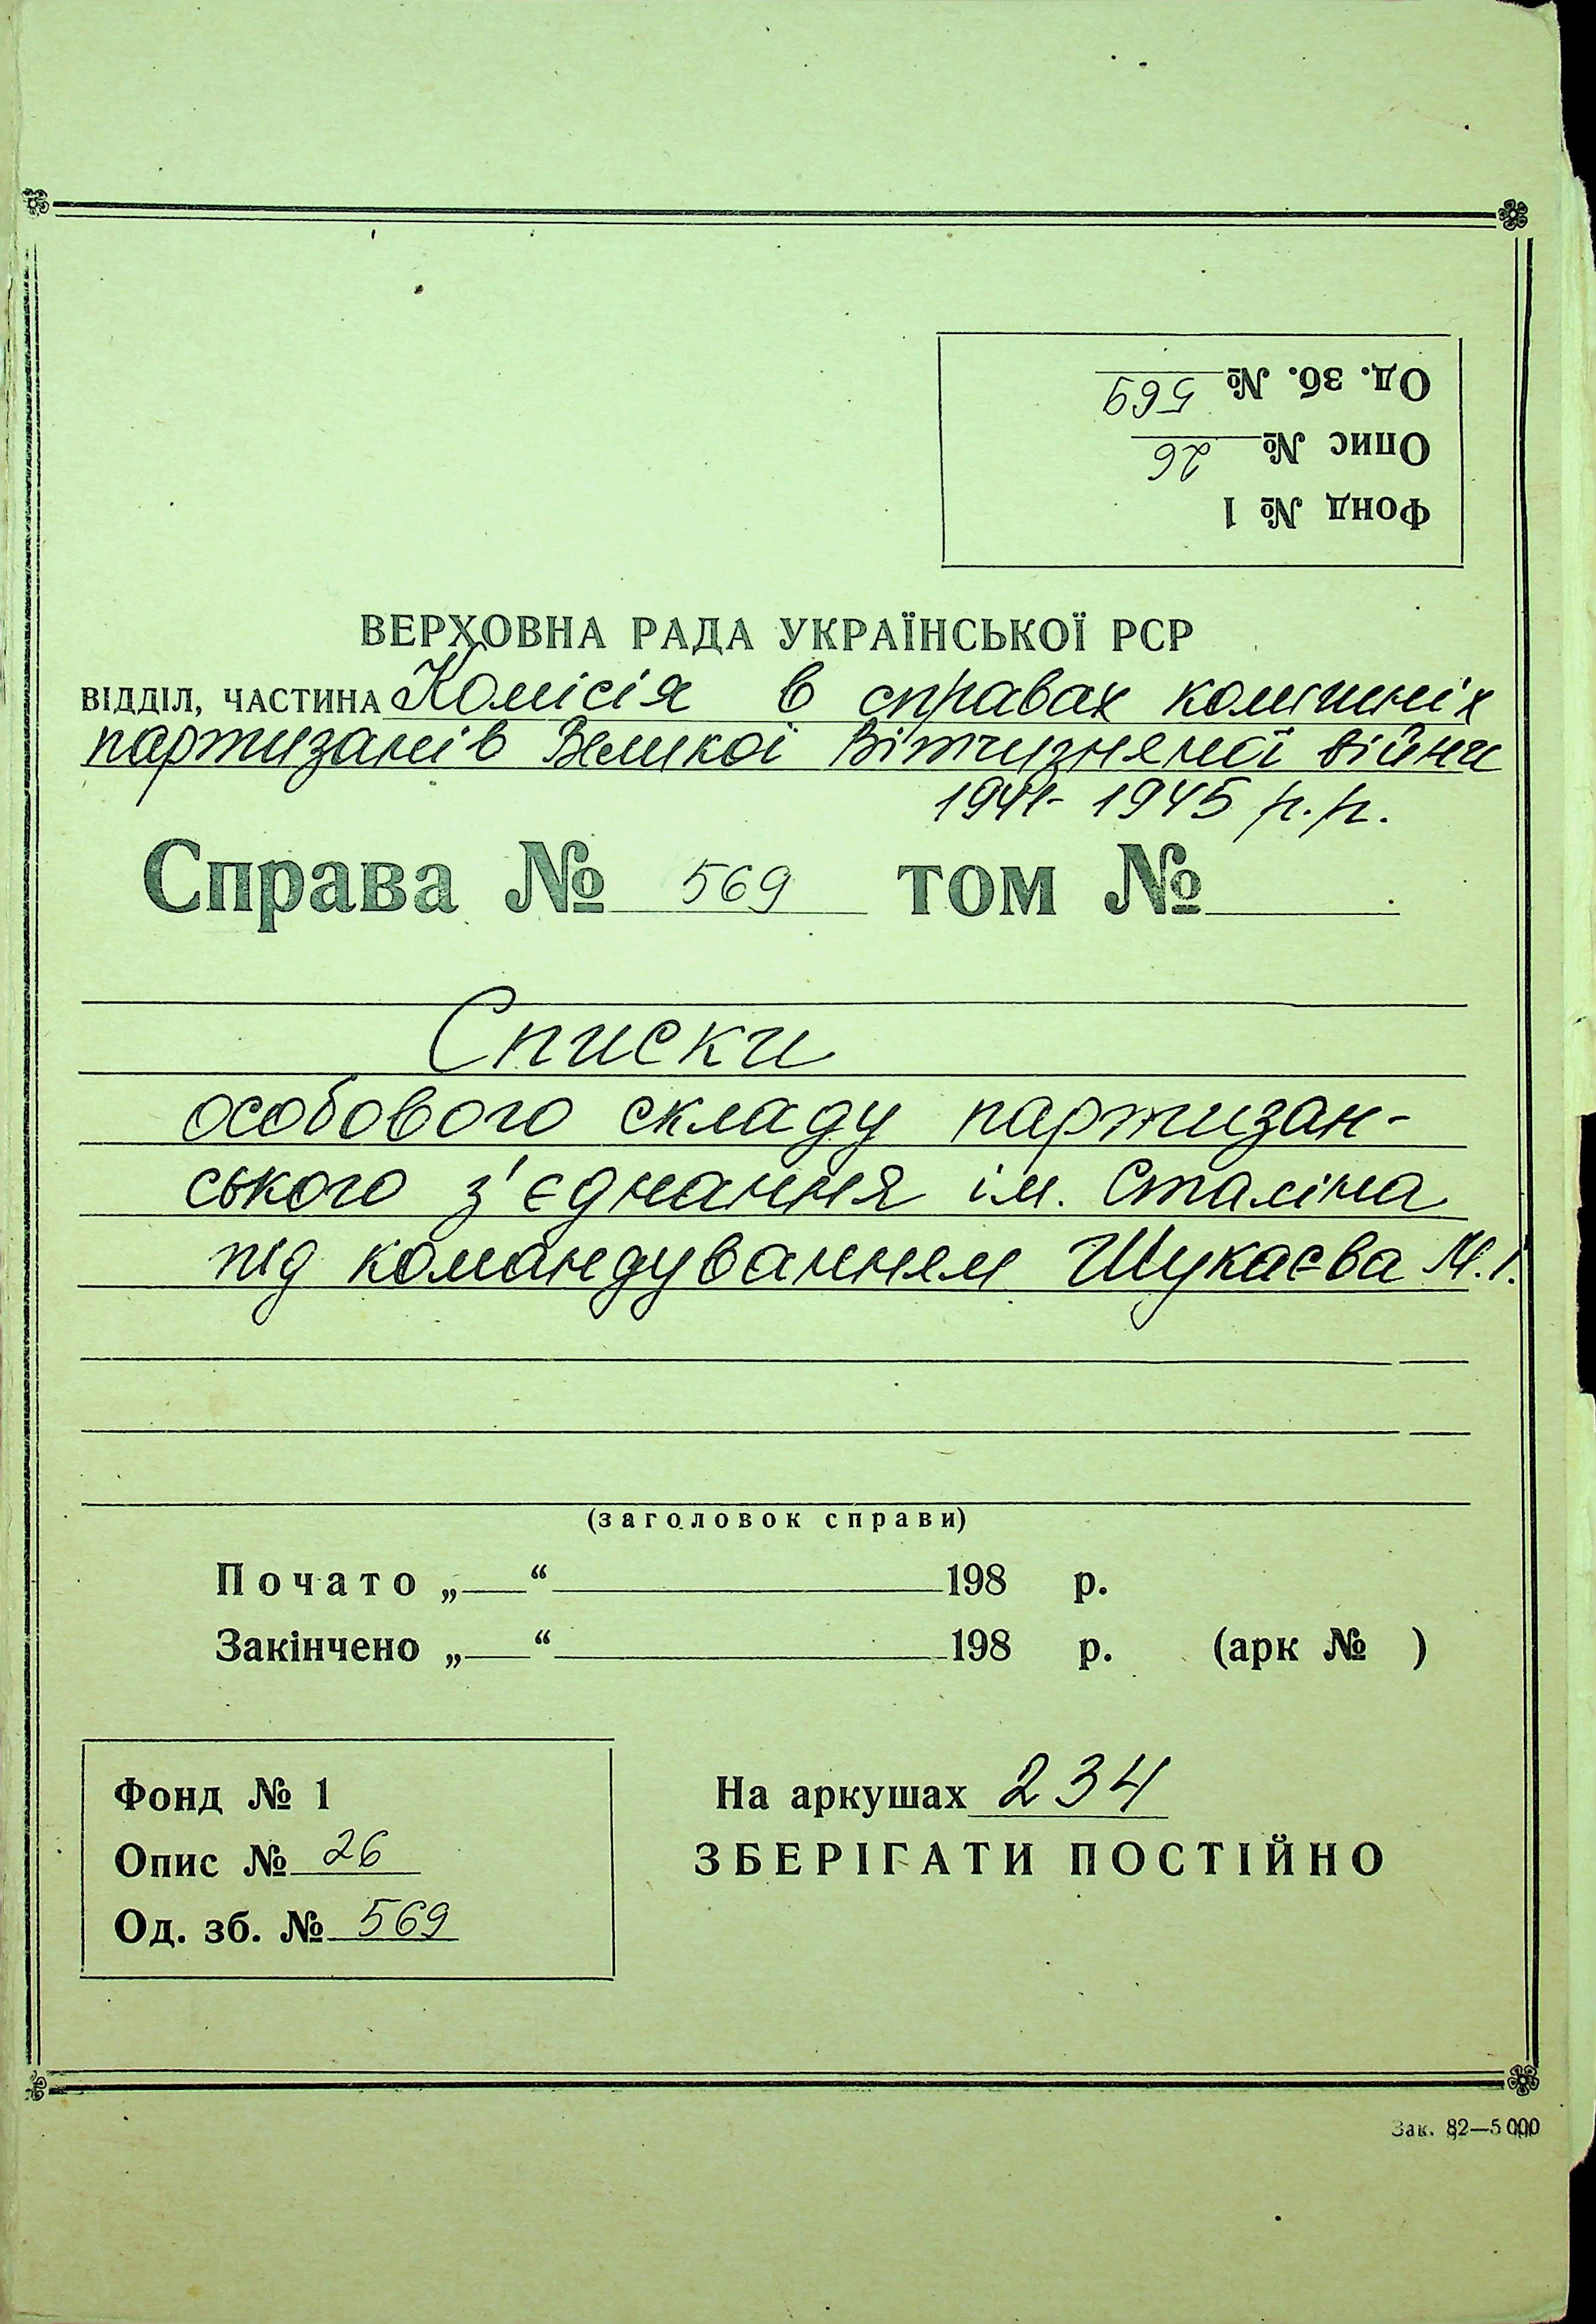 Од. зб. № 569
Опис № 26
Фонд № 1
ВЕРХОВНА РАДА УКРАЇНСЬКОЇ РСР
ВІДДІЛ, ЧАСТИНА Комісія в справах колишніх
партизанів Великої Вітчизняної війни
1941-1945 р.р.
Справа № 569 том №
Списки
особового складу партизан-
ського з'єднання ім. Сталіна
під командуванням Шукаєва М.І.
(заголовок справи)
Почато „ “ 198 р.
Закінчено „ “ 198 р. (арк № )
Фонд № 1
Опис № 26
Од. зб. № 569
На аркушах 234
ЗБЕРІГАТИ ПОСТІЙНО
Зак. 82—5 000